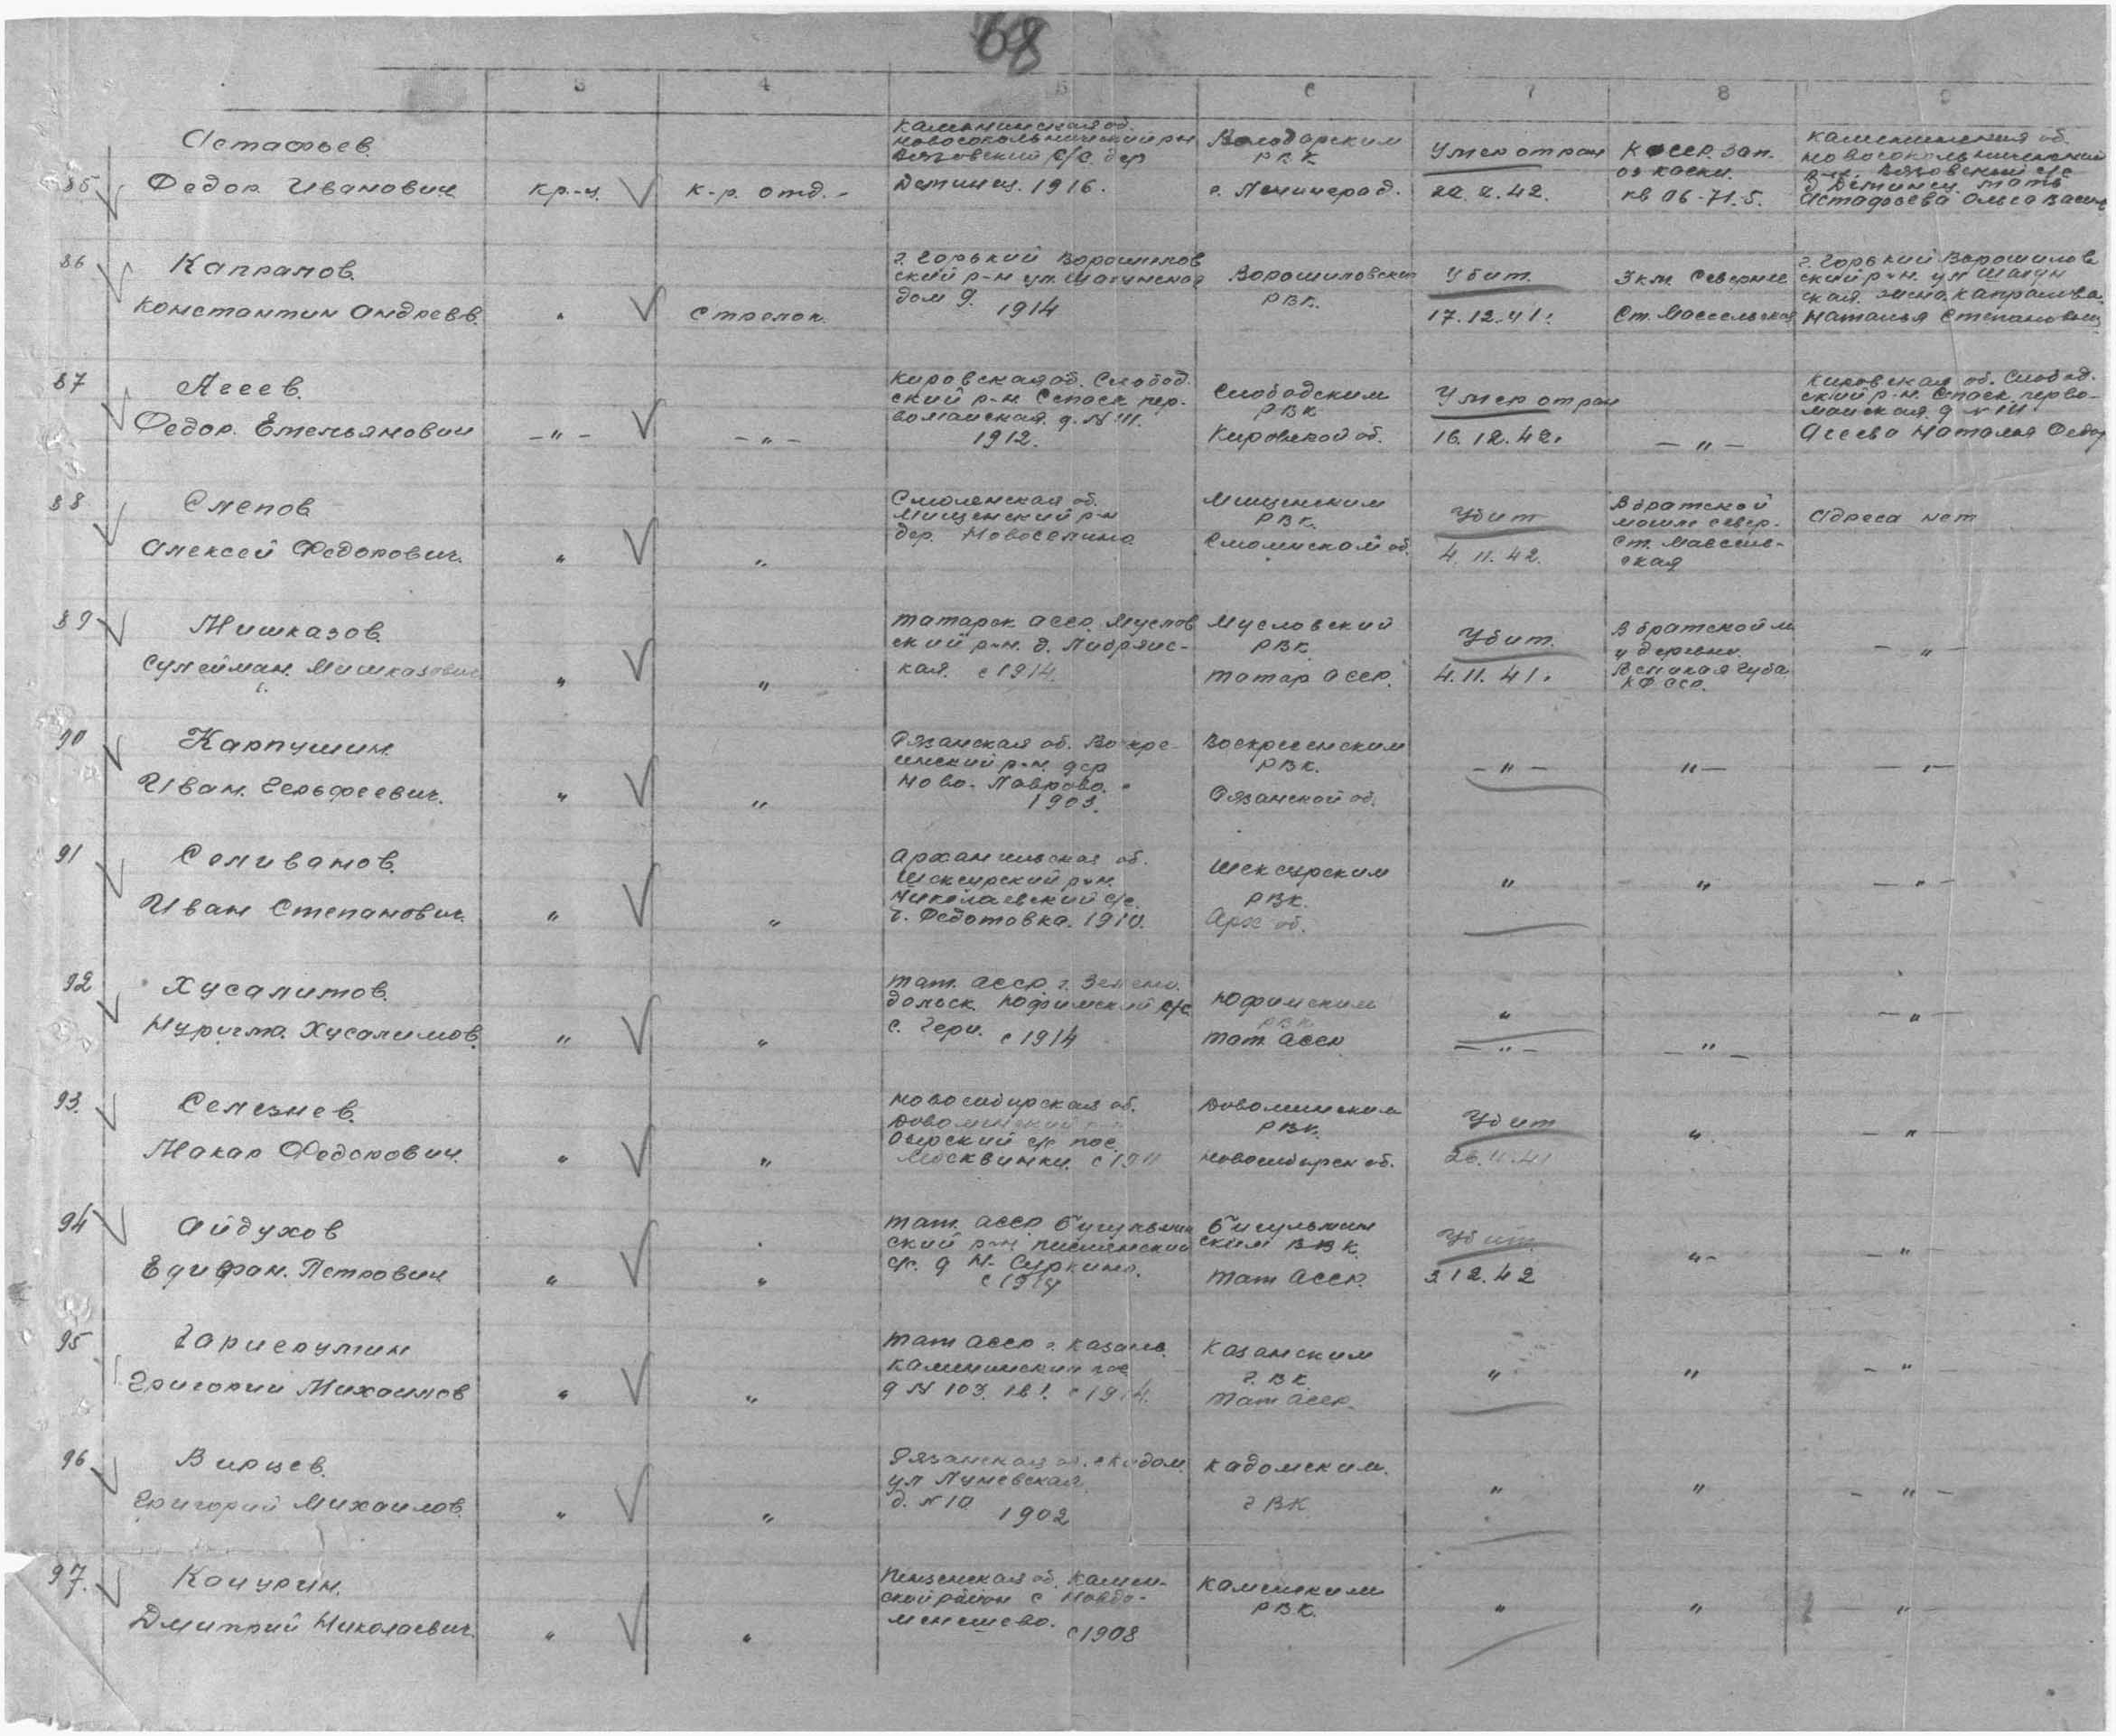 68
3 4 5 6 7 8 9
85
Астафьев.
Федор. Иванович.
кр.-ц.
к-р. отд.-
Калининская об.
новосокольнический р-н
Вязовский с/с. дер
Детинец. 1916.
Володарским
Р.В.К.
г. Ленинград.
Умер от ран
22. 2. 42.
К ССР. Зап.
оз
кв 06-71-5.
Калининская об.
новосокольнический
р-н. Вязовский с/с
д Детинец. мать
Астафьева Ольга Васил
86
Капралов.
Константин Андреев.
"
Стрелок.
г. Горький Ворошилов
ский р-н ул.
дом 9.
1914
Ворошиловским
РВК.
Убит.
17.12.41.
3 км. Севернее
Ст. Массельская
г. Горький Ворошилов
ский р-н. ул
ская. жена. Капралова.
Наталья Степановна
87
Асеев.
Федор. Емельянович
-"-
-"-
Кировская об. Слобод.
ский р-н. Спасск. пер.
вомайская. д. N
1912.
Слободским
РВК
Кировской об.
Умер от ран
16. 12. 42.
-"-
Кировская об. Слобод.
ский р-н. Спасск. перво-
майская. д N
Асеева Наталья Федор
88
Слепов
Алексей Федорович.
"
"
Смоленская об.
Мищенский р-н
дер. Новоселино
Мищенским
РВК.
Смоленской об.
Убит
4. 11. 42.
В братской
могиле север.
Ст. Массель-
ская
Адреса нет
89
Мишказов.
Сулейман. Мишказович
"
"
Татарск АССР. Муслов
ский р-н. д.
кая. с 1914.
Мусловский
РВК.
Татар АССР.
Убит.
4. 11. 41.
В братской м.
у деревни.
Великая Губа
КФССР.
- " -
90
Карпушин.
Иван.
"
"
Рязанская об. Воскре-
сенский р-н. дер
Ново-Лаврово.
1903.
Воскресенским
РВК.
Рязанской об.
-"-
"-
-"-
91
Селиванов.
Иван Степанович.
"
"
Архангельская об.
р-н.
Николаевский с/с.
д. Федотовка. 1910.
РВК.
Арх об.
"
"
-"-
92
Хусалитов.
Хусалимов.
"
"
Тат. АССР. г. Зелено.
дольск. Юдинский с/с
с.
с 1914
РВК
Тат. АССР
"
-"-
-"-
-"-
93.
Селезнев.
Макар Федорович.
"
"
Новосибирская об.
с/с пос.
Москвинки.
РВК.
Новосибирск об.
Убит
26. 11. 41
"
-"-
94
Айдухов
Епифан. Петрович
"
"
Тат. АССР. Бугульмин
ский р-н
с/с. д Н-Суркино.
Бугульмин
ским РВК.
Тат АССР.
Убит.
3 12. 42
"-
-"-
95
Григорий Михаилов
"
"
Тат АССР г. Казань.
Калининский пос
д N 103. кв 1. с 1914.
Казанским
Г. В К.
Тат АССР.
"
"
-"-
96
Вирцев.
Григорий Михаилов.
"
"
Рязанская об. г Кадом
ул Луневская,
д. N 10
1902
Кадомским.
Г ВК
"
"
-"-
97.
Качурин.
Дмитрий Николаевич.
"
"
Пензенская об. Камен-
ской район с
меншево.
с 1908
Каменским
РВК.
"
"
-"-